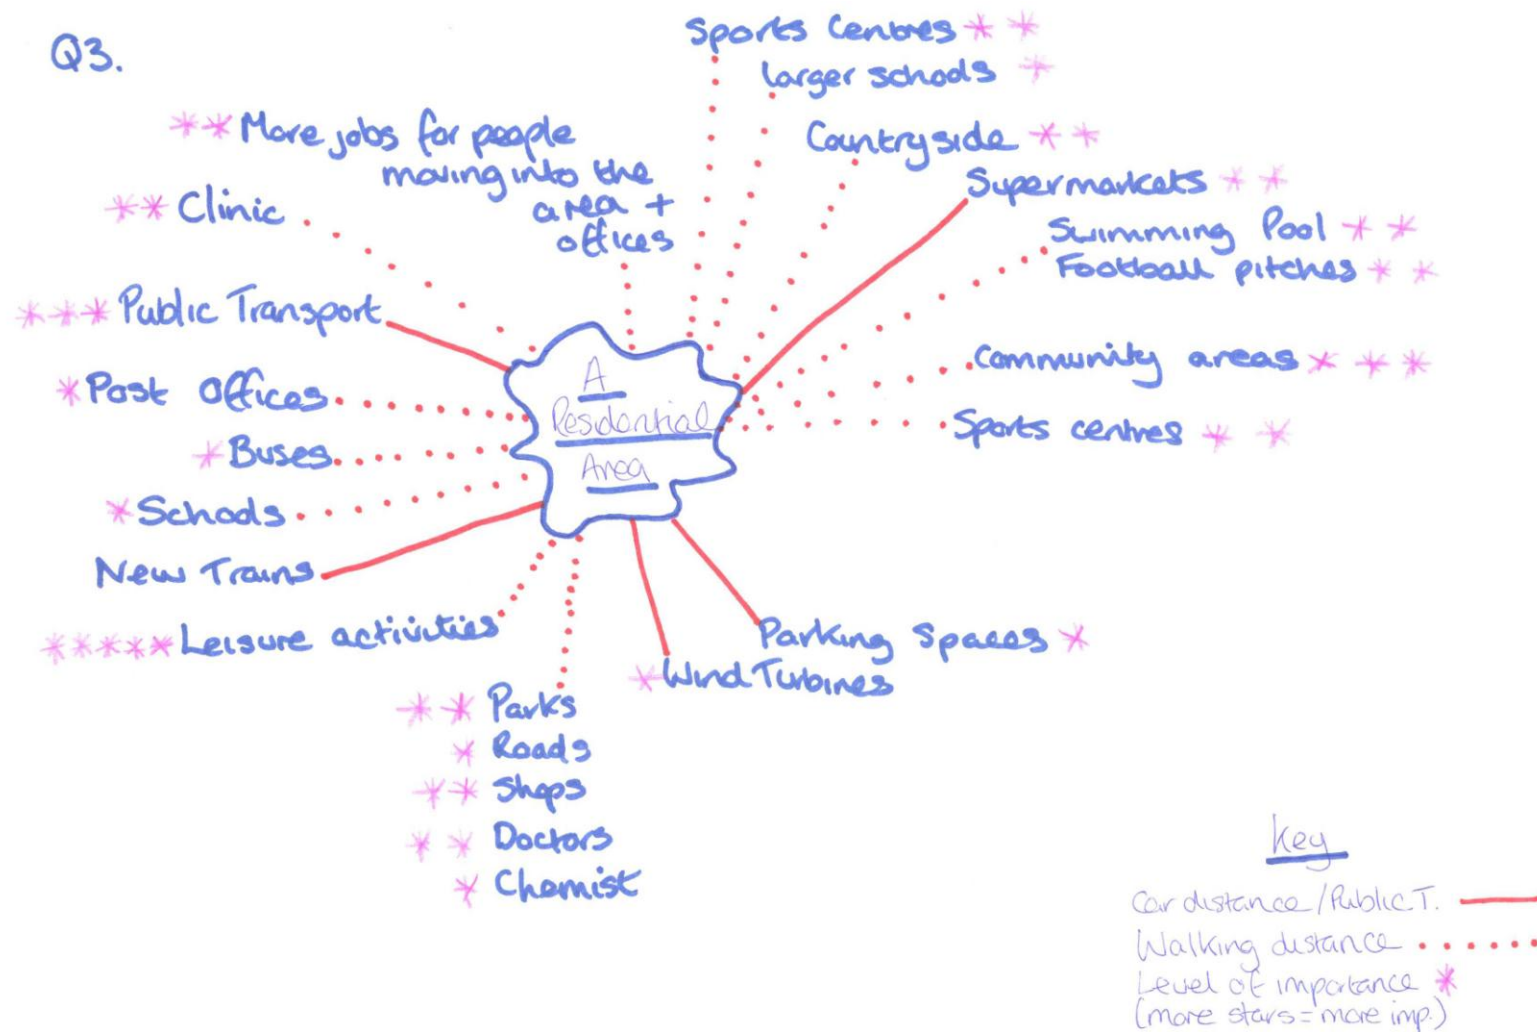 Q3.
Sports Centres **
larger schools *
** More jobs for people
moving into the
area +
offices
Countryside **
Supermarkets **
** Clinic
Swimming Pool **
Football pitches **
*** Public Transport
Community areas ***
* Post Offices
Sports centres **
* Buses
* Schools
New Trains
A
Residential
Area
***** Leisure activities
Parking Spaces *
* Wind Turbines
** Parks
* Roads
** Shops
** Doctors
* Chemist
Key
Car distance/Public T.
Walking distance
Level of importance *
(more stars = more imp.)